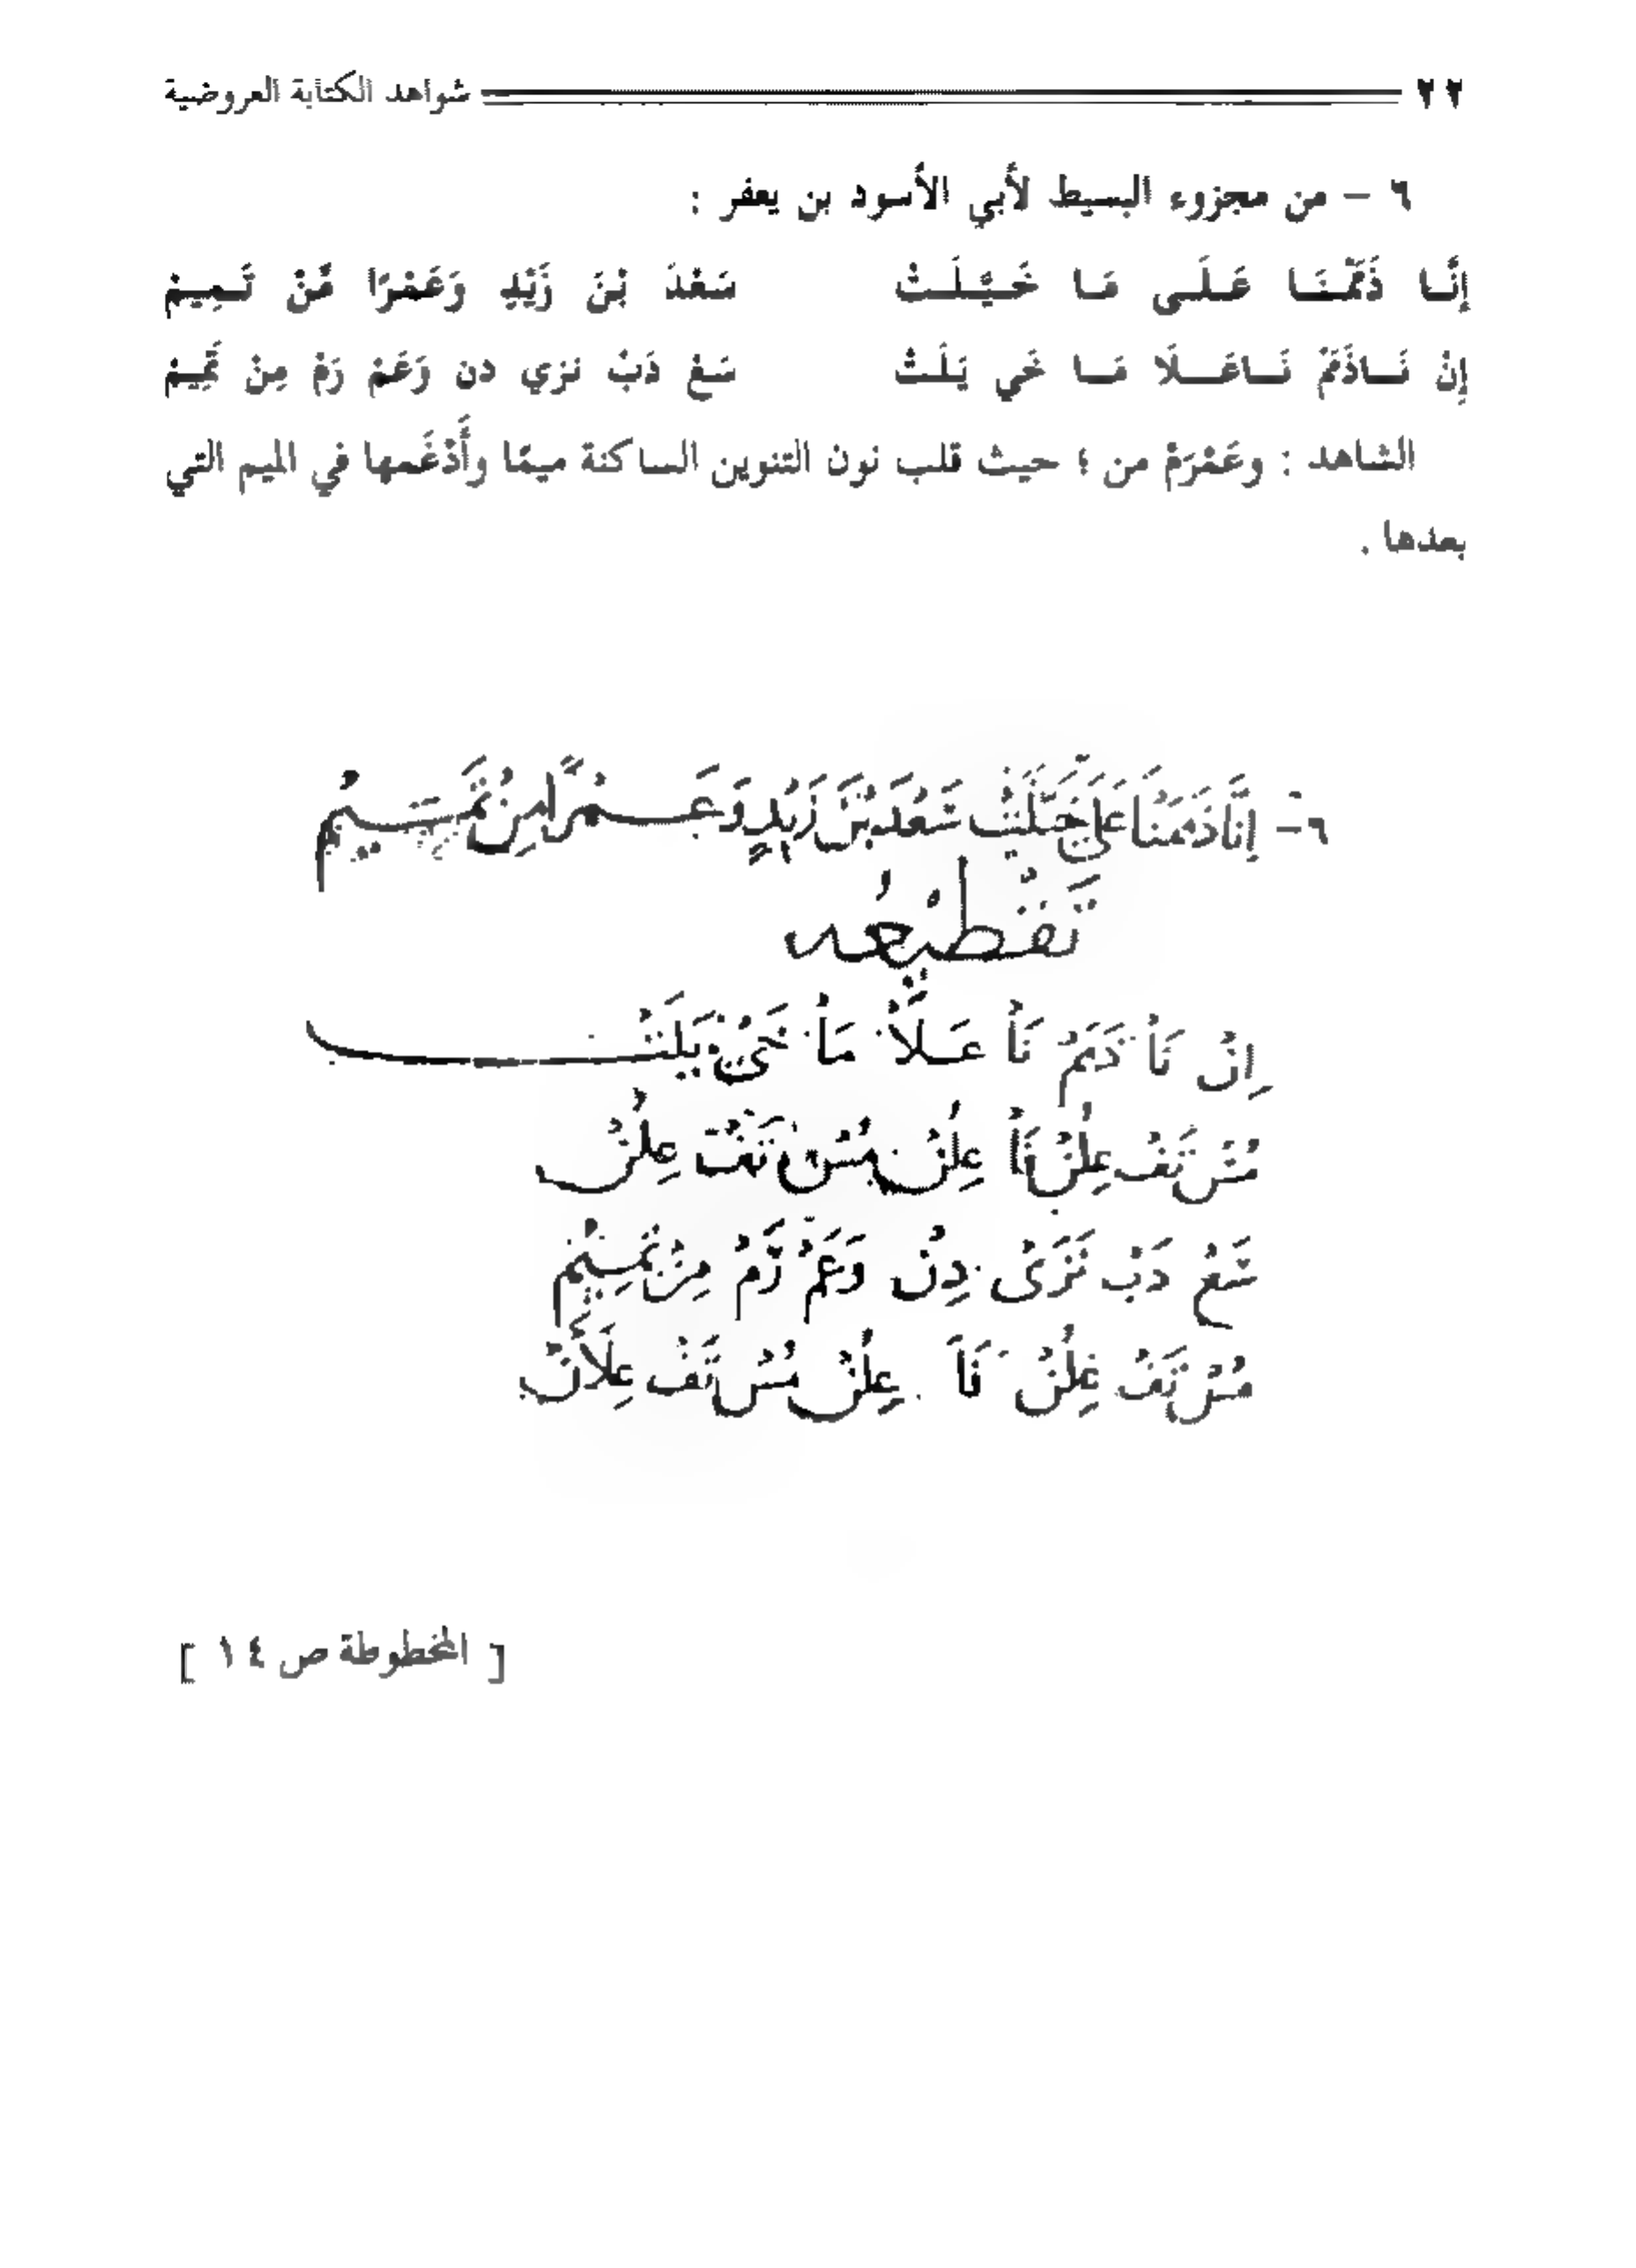 ٢٢ شواهد الكتابة العروضية
٦ – من مجزوء البسيط لأبي الأسود بن يعفر :
إنَّا ذَمَمْنَا عَلَى مَا خَيَّلَتْ سَعْدَ بْنَ زَيْدٍ وَعَمْرًا مِّنْ تَمِيمْ
إِنْ نَاذَمَمْ نَاعَلَا مَا خَي يَلَتْ سَعْ دَبْ نزي دن وَعَمْ رَمْ مِنْ تَمِيمْ
الشاهد : وعَمْرَمْ من ؛ حيث قلب نون التنوين الساكنة ميمًا وأَدْغَمها في الميم التي
بعدها .
٦- إِنَّا ذَمَمْنَا عَلَى خَيَّلَتْ سَعْدَ بْنَ زَيْدٍ وَعَمْرًا مِنْ تَمِيمْ
تَقْطِيْعُه
اِنْ نَاْ ذَمَمْ نَاْ عَلَاْ مَاْ خَىْ يَلَتْ
مُسْ تَفْ عِلُنْ فَاْ عِلُنْ مُسْ تَفْ عِلُنْ
سَعْ دَبْ نَزَىْ دِنْ وَعَمْ رَمْ مِنْ تَمِيْمْ
مُسْ تَفْ عِلُنْ فَاْ عِلُنْ مُسْ تَفْ عِلَاْنْ
[ المخطوطة ص ١٤ ]